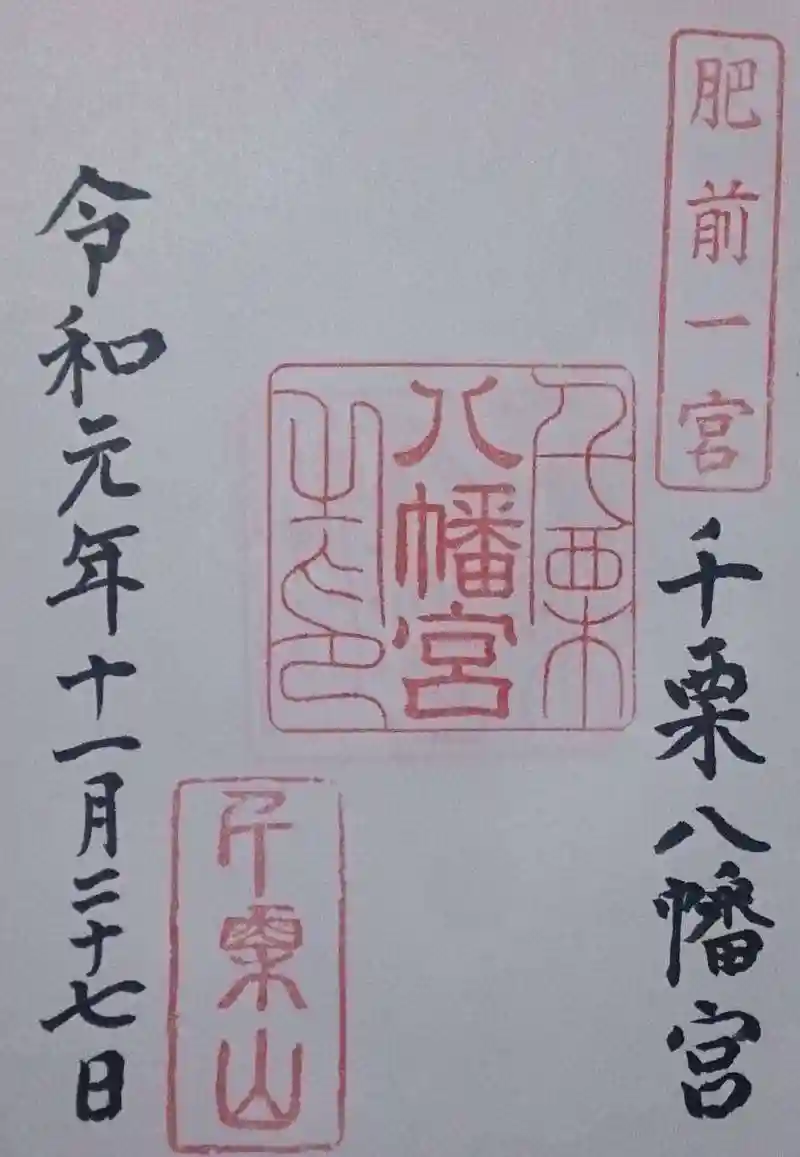 肥前一宮
千栗八幡宮
千栗
八幡宮
之印
千栗山
令和元年十一月二十七日